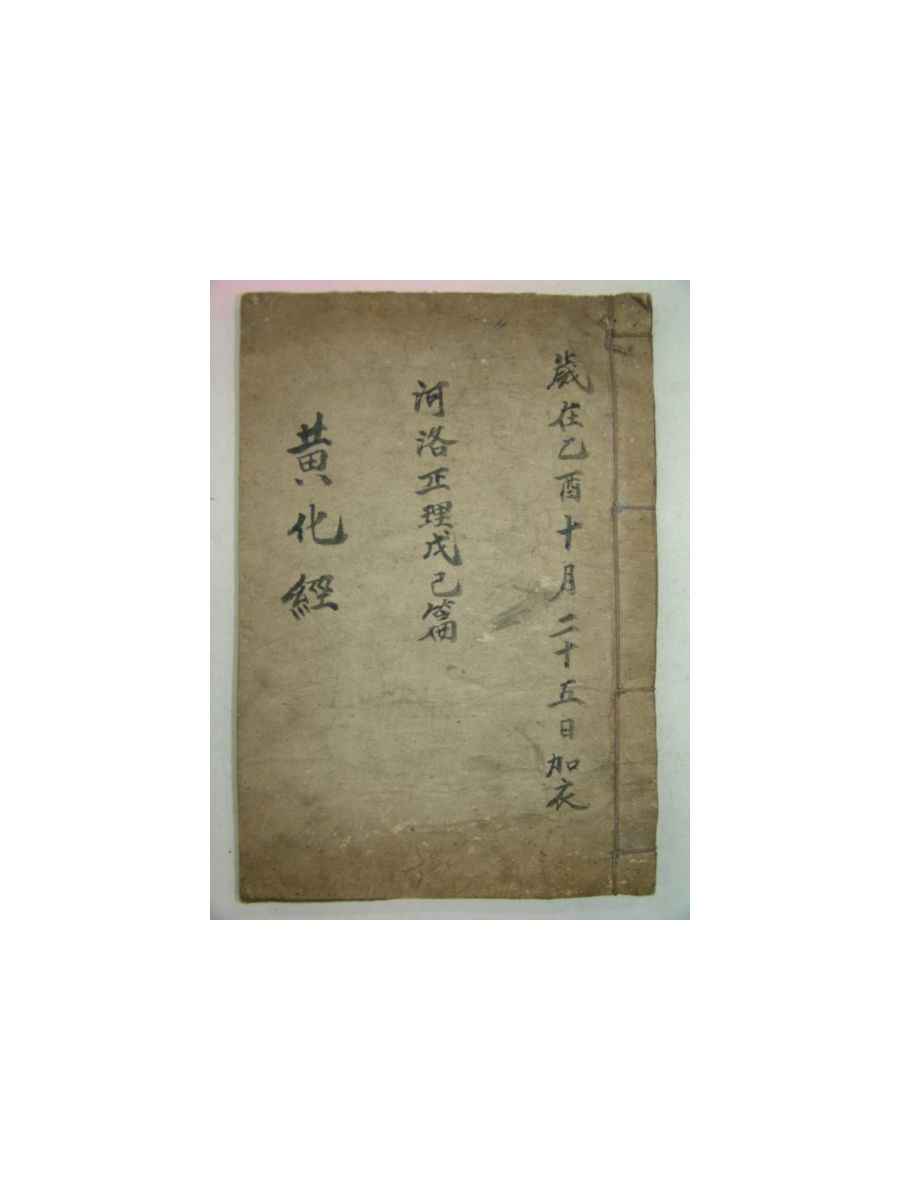 歲在乙酉十月二十五日加衣
河洛正理戊己篇
黃化經